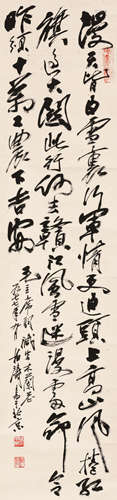 漫天皆白雪裏行軍情更迫頭上高山風捲紅
旗過大關此行何去贛江風雪迷漫處命令
昨頒十萬工農下吉安
毛主席詞減字木蘭花
一九七七年